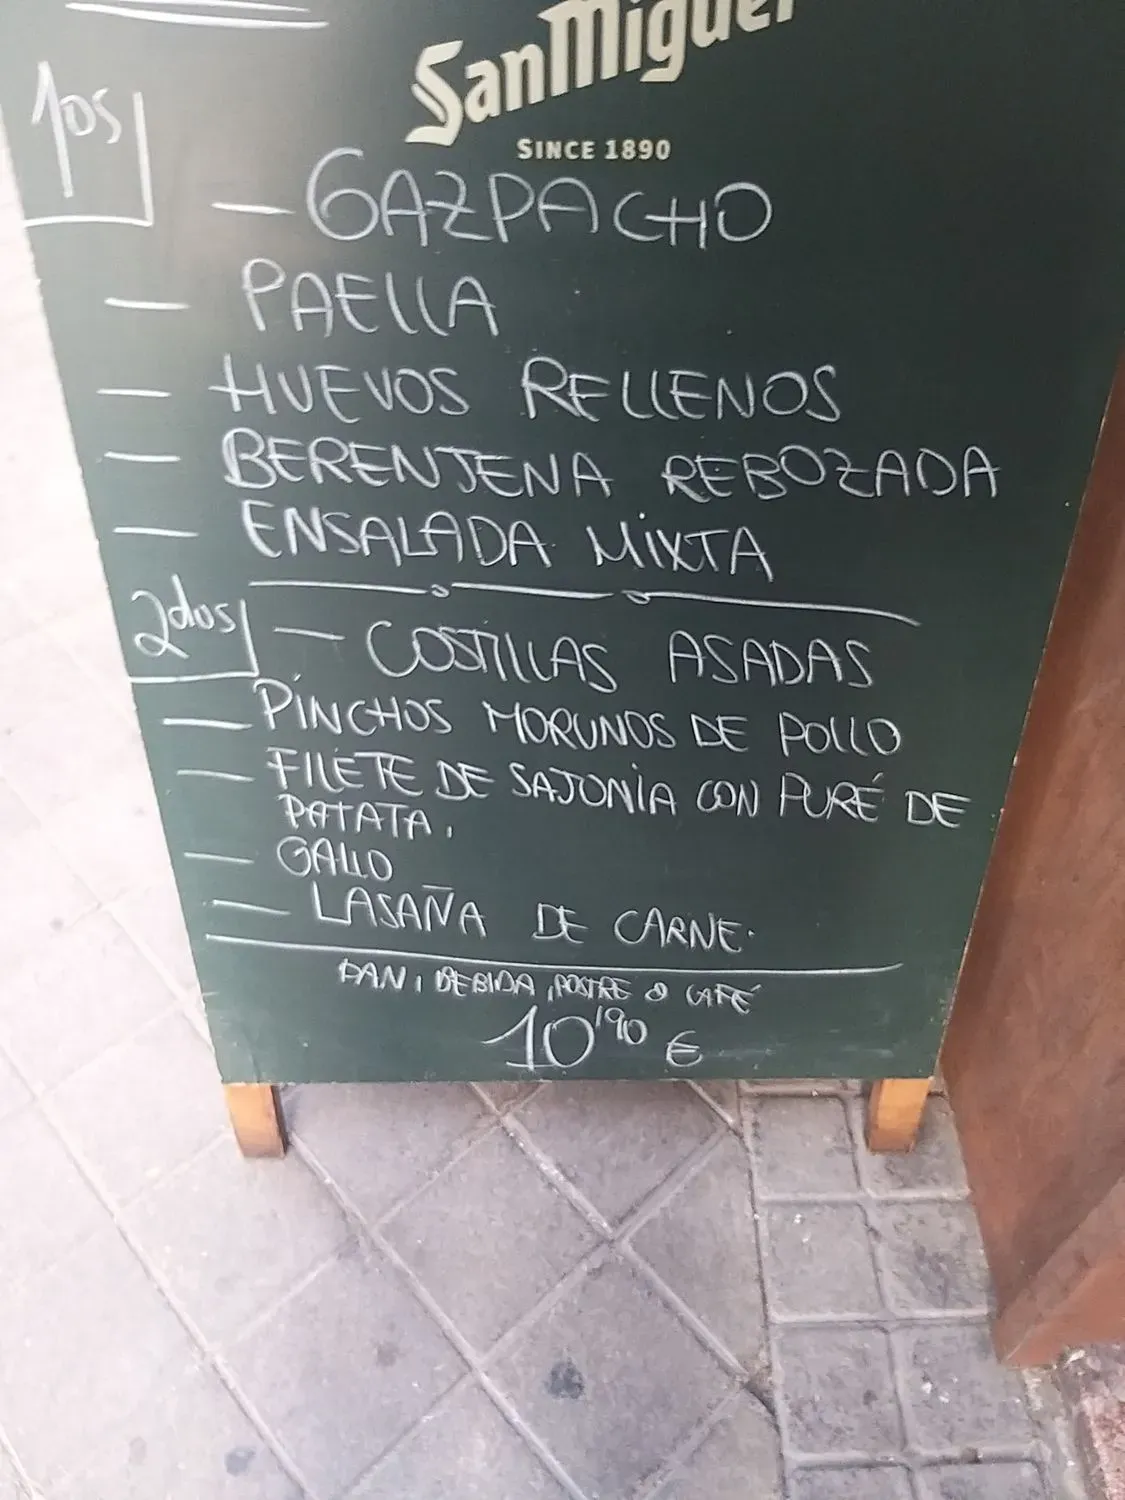 SanMiguel
SINCE 1890
1os
- GAZPACHO
- PAELLA
- HUEVOS RELLENOS
- BERENJENA REBOZADA
- ENSALADA MIXTA
2dos
- COSTILLAS ASADAS
- PINCHOS MORUNOS DE POLLO
- FILETE DE SAJONIA CON PURÉ DE
PATATA.
- GALLO
- LASAÑA DE CARNE.
PAN, BEBIDA, POSTRE O CAFÉ
10'90 €